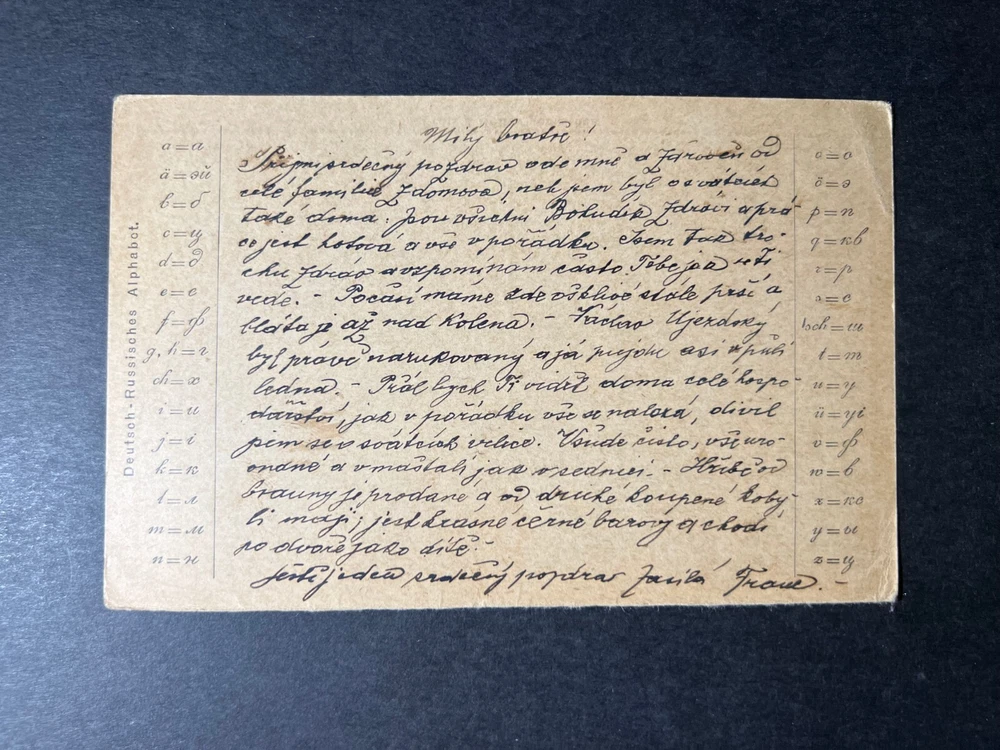 Deutsch-Russisches Alphabet.
a=a
ä=эй
b=б
c=ц
d=д
e=е
f=ф
g, h=г
ch=х
i=и
j=і
k=к
l=л
m=м
n=н
Milý bratře!
Přijmi srdečný pozdrav ode mně a zároveň od
celé familie z domova, neb jsem byl o svátcích
také doma. Jsou všichni Bohudík zdrávi a prá-
ce jest hotová a vše v pořádku. Jsem tak tro-
chu zdráv a vzpomínám často Tobe jak se Ti
vede. – Počasí máme zde ošklivé stále prší a
bláta je až nad kolena. – Václav Ujezdský
byl právě narukovaný a já pujdu asi v půli
ledna. – Přál bych Ti vidět doma celé hospo-
dářství, jak v pořádku vše se nalezá, divil
jsem se o svátcích velice. Všude čisto, vše uro-
vnané a v maštali jak v sednici. – Hříbě od
brauny je prodané a od druhé koupené koby-
li mají, jest krásné černé barvy a chodí
po dvoře jako dítě. –
Ještě jeden srdečný pozdrav zasílá Franc. –
o=о
ö=э
p=п
q=кв
r=р
s=с
sch=ш
t=т
u=у
ü=уі
v=ф
w=в
x=кс
y=ы
z=ц